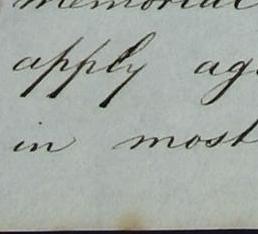 memorial
apply ag
in most